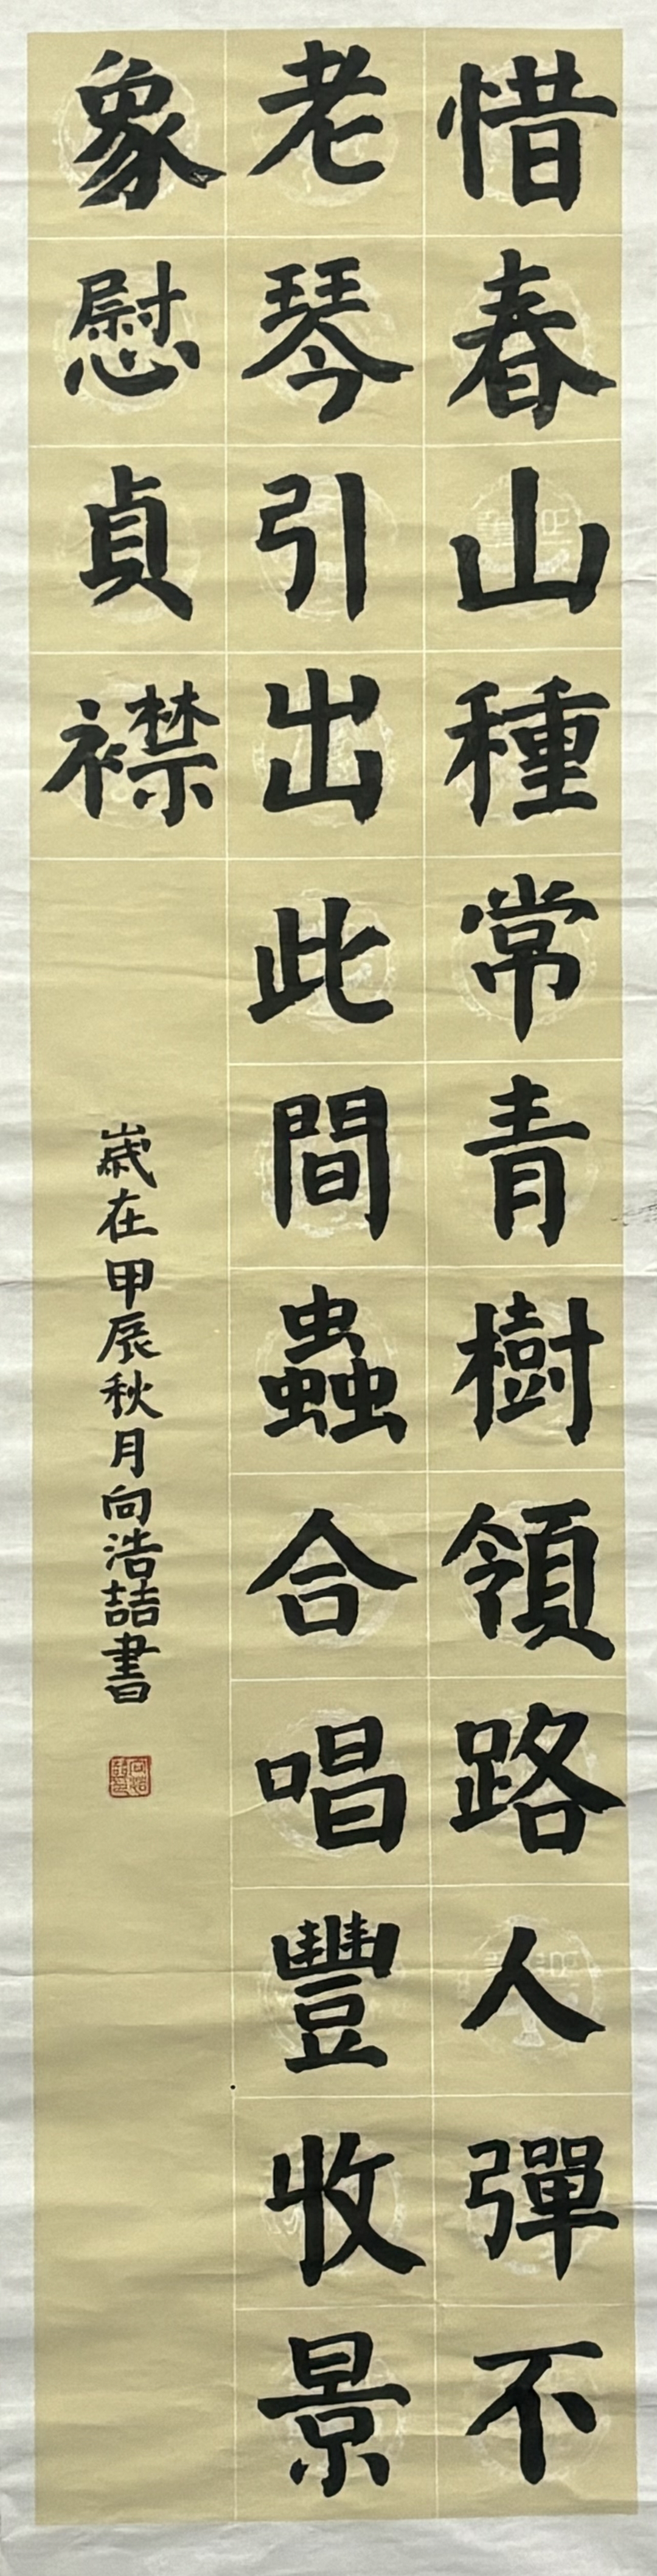 惜春山種常青樹領路人彈不
老琴引出此間蟲合唱豐收景
象慰貞襟
歲在甲辰秋月向浩喆書